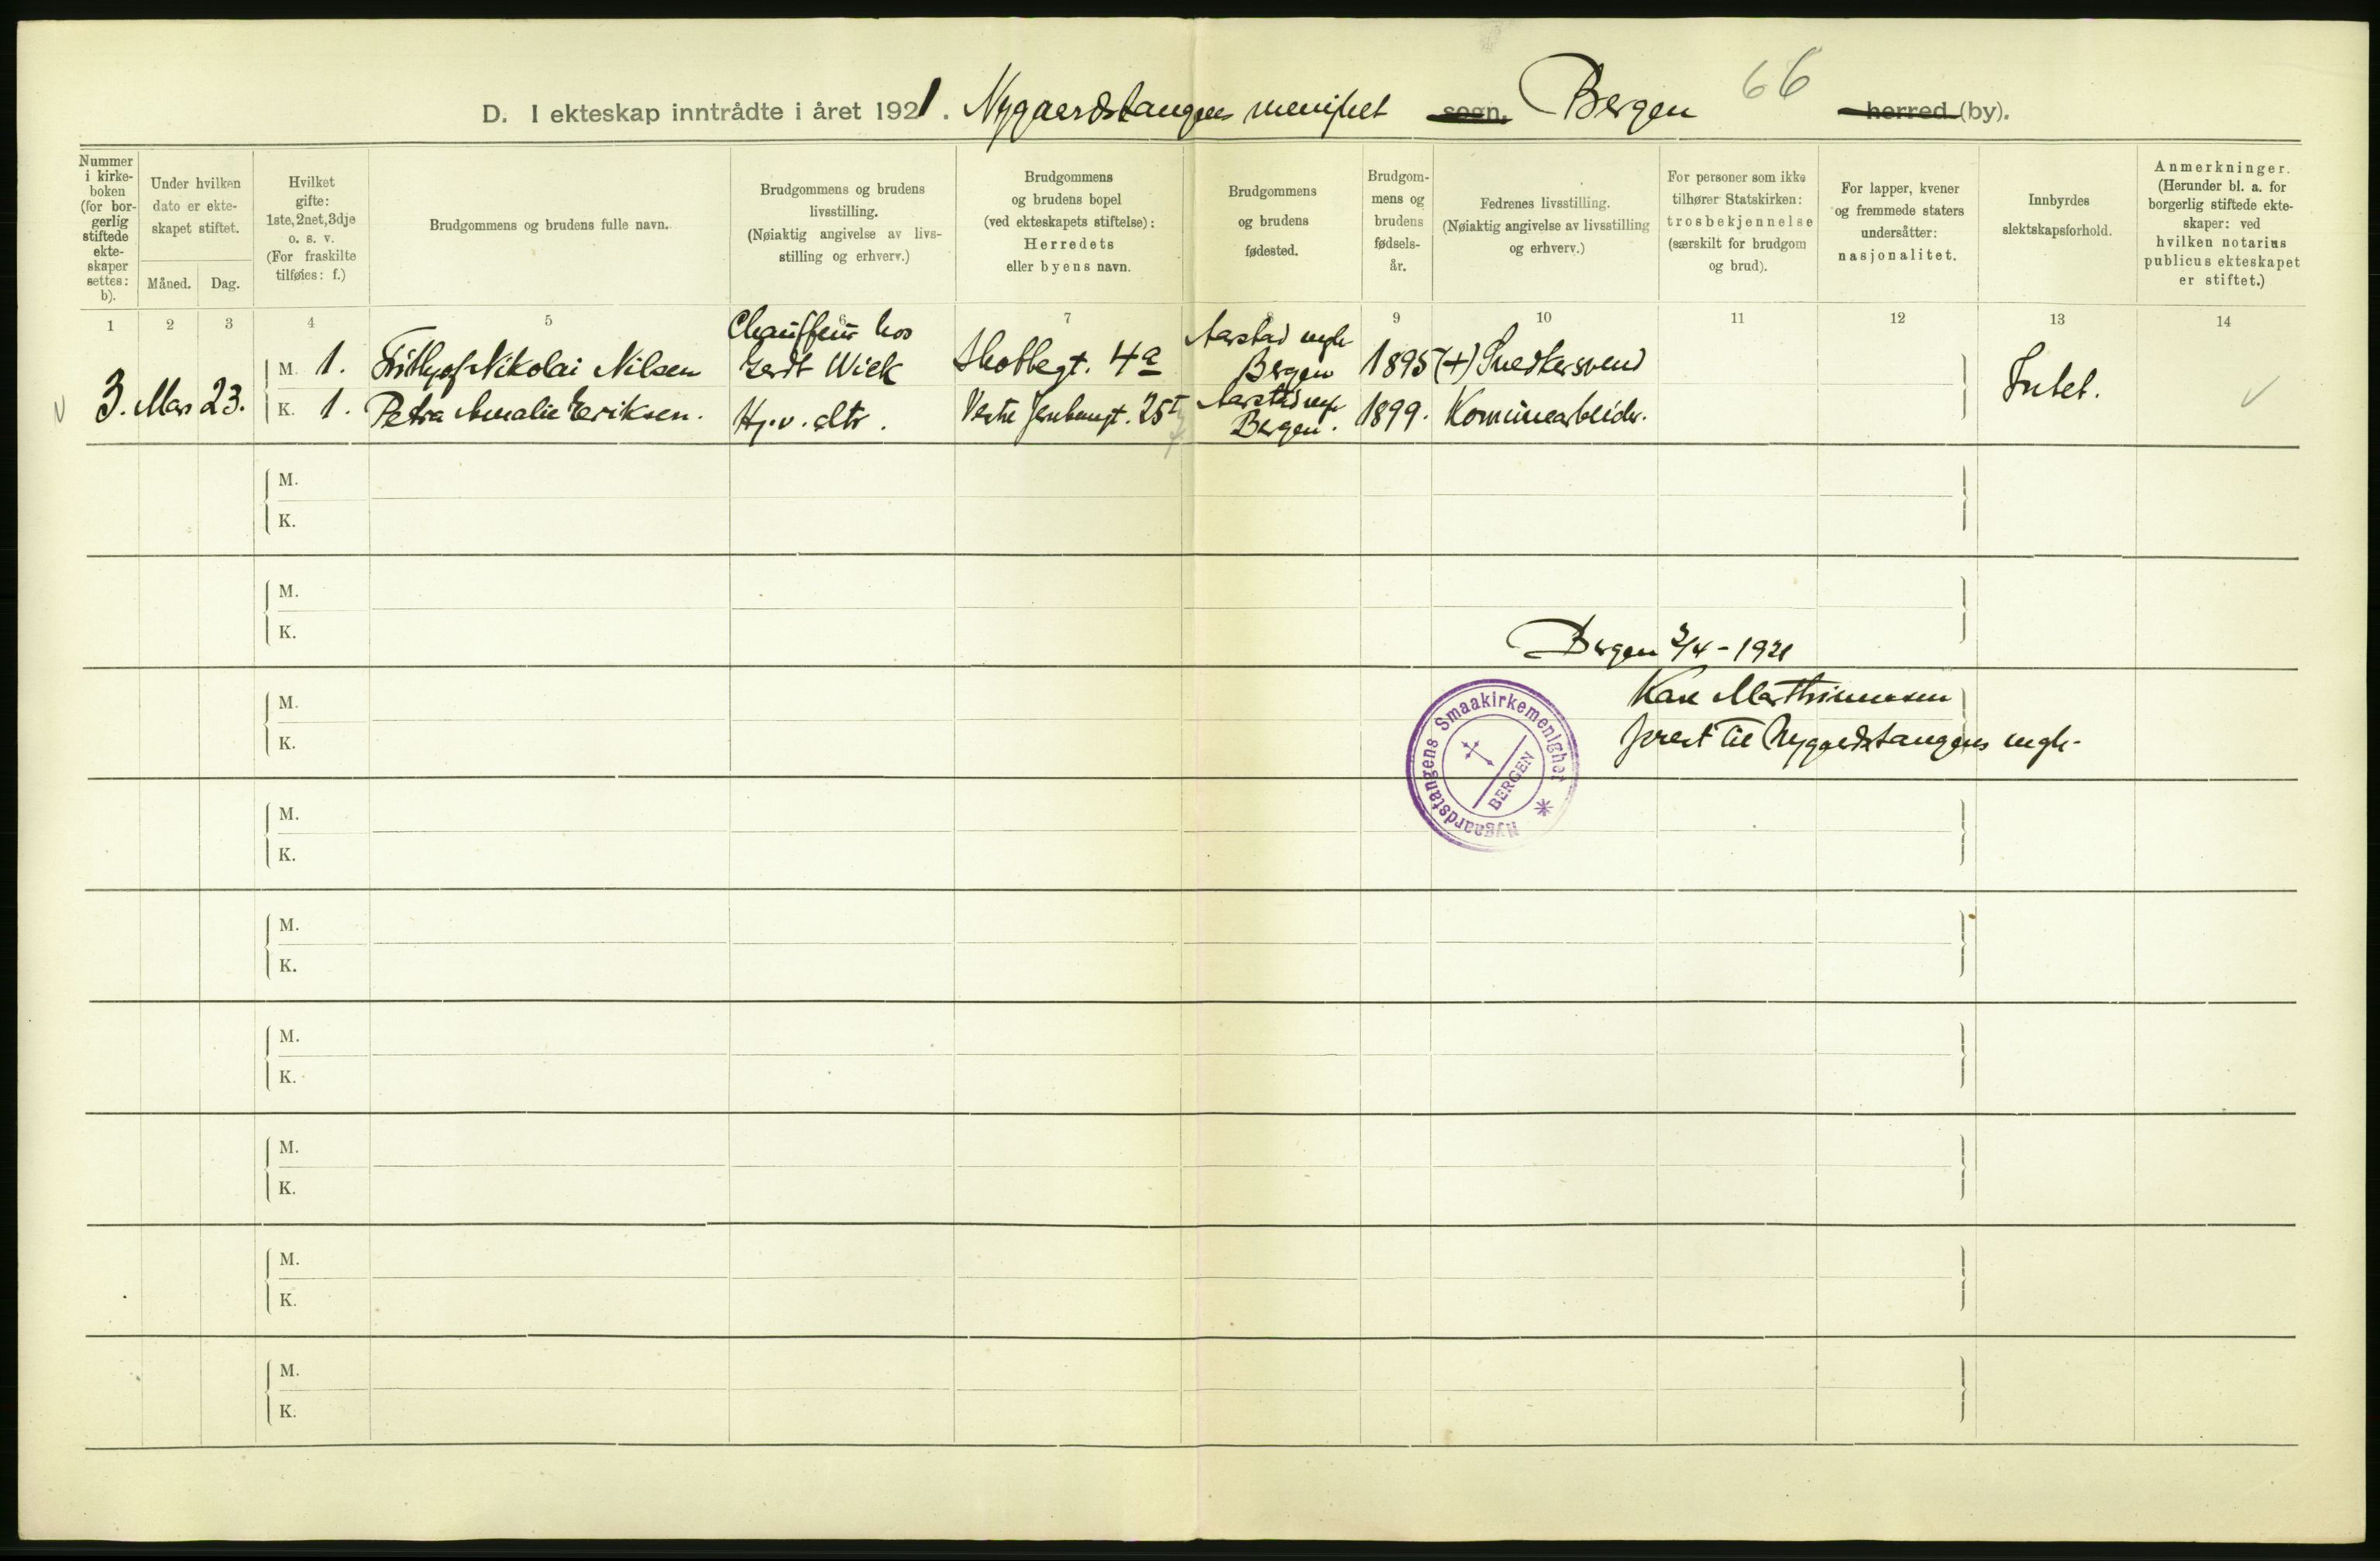 66
D. I ekteskap inntrådte i året 1921. Nygaardstangens menighet sogn. Bergen herred (by).
Nummer
i kirke-
boken
(for bor-
gerlig
stiftede
ekte-
skaper
settes:
b).
Under hvilken
dato er ekte-
skapet stiftet.
Måned. Dag.
Hvilket
gifte:
1ste, 2net, 3dje
o. s. v.
(For fraskilte
tilføies: f.)
Brudgommens og brudens fulle navn.
Brudgommens og brudens
livsstilling.
(Nøiaktig angivelse av livs-
stilling og erhverv.)
Brudgommens
og brudens bopel
(ved ekteskapets stiftelse):
Herredets
eller byens navn.
Brudgommens
og brudens
fødested.
Brudgom-
mens og
brudens
fødsels-
år.
Fedrenes livsstilling.
(Nøiaktig angivelse av livsstilling
og erhverv.)
For personer som ikke
tilhører Statskirken:
trosbekjennelse
(særskilt for brudgom
og brud).
For lapper, kvener
og fremmede staters
undersåtter:
nasjonalitet.
Innbyrdes
slektskapsforhold.
Anmerkninger.
(Herunder bl. a. for
borgerlig stiftede ekte-
skaper: ved
hvilken notarius
publicus ekteskapet
er stiftet.)
1 2 3 4 5 6 7 8 9 10 11 12 13 14
3. Mars 23.
M. 1. Frithjof Nikolai Nilsen
Chauffeur hos
Gerdt Wiek
Skottegt. 4a
Aarstad mgh
Bergen
1895 (+) Snedkersvend
Intet.
K. 1. Petra Amalie Eriksen.
Hj. v. dtr.
Vestre Jernbanegt. 25 I
Aarstad mgh
Bergen.
1899. Kommunearbeider.
M.
K.
M.
K.
Bergen 2/4 - 1921
M.
K.
Mathiesen
prest til Nygaardstangens mgh.
Nygaardstangens Smaakirkemenighet
BERGEN
M.
K.
M.
K.
M.
K.
M.
K.
M.
K.
M.
K.